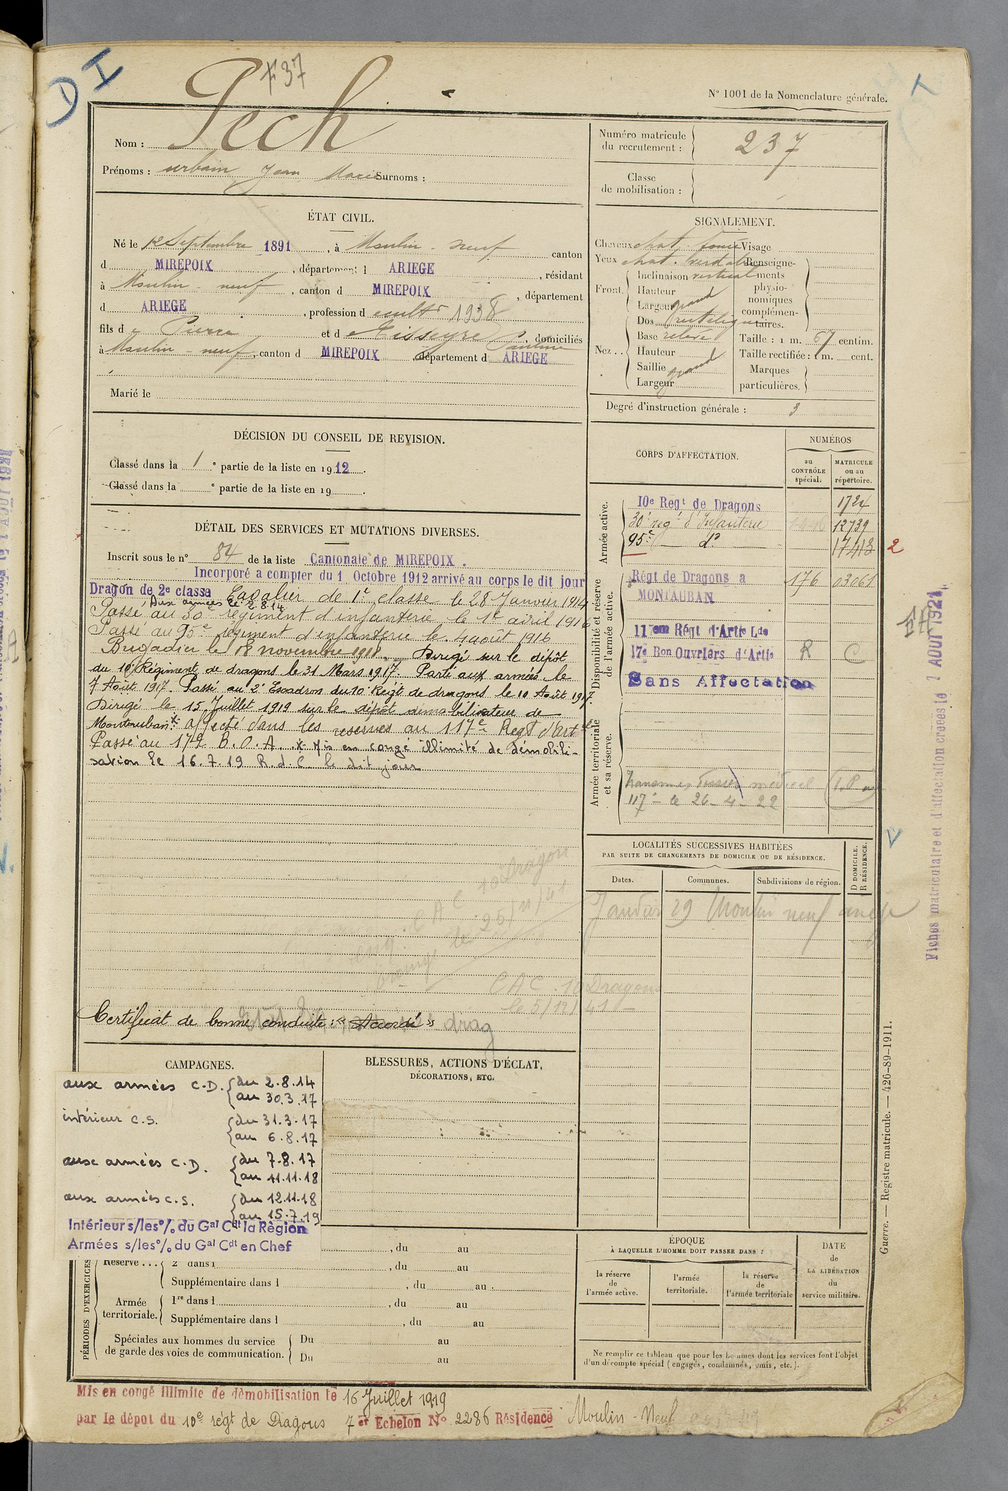 D I
F 37
N° 1001 de la Nomenclature générale.
Nom : Pech
Prénoms : urbain Jean Marie Surnoms :
Numéro matricule du recrutement : 237
Classe de mobilisation :
ÉTAT CIVIL.
Né le 12 Septembre 1891, à Moulin-neuf canton
d MIREPOIX, département d ARIEGE, résidant
à Moulin-neuf, canton d MIREPOIX, département
d ARIEGE, profession d cultr 1938
fils d Pierre et d Tisseyre Pauline, domiciliés
à Moulin-neuf, canton d MIREPOIX département d ARIEGE
Marié le
SIGNALEMENT.
Cheveux chat. foncé Visage
Yeux chat. verdatre Renseigne-
Front. Inclinaison vertical ments
Hauteur physio-
Largeur grand nomiques
Dos rectiligne complémen-
taires.
Nez. Base relevé Taille : 1 m. 67 centim.
Hauteur Taille rectifiée : 1 m. cent.
Saillie grand Marques
Largeur particulières.
Degré d'instruction générale : 3
DÉCISION DU CONSEIL DE REVISION.
Classé dans la 1e partie de la liste en 1912.
Classé dans la e partie de la liste en 19
DÉTAIL DES SERVICES ET MUTATIONS DIVERSES.
Inscrit sous le n° 84 de la liste Cantonale de MIREPOIX.
Incorporé a compter du 1 Octobre 1912 arrivé au corps le dit jour
Dragon de 2e classe Cavalier de 1e classe le 28 Janvier 1914
Aux armées le 2.8.14
Passé au 30e régiment d'infanterie le 1er avril 1916
Passé au 95e régiment d'infanterie le 4 août 1916
Brigadier le 18 novembre 1911. Dirigé sur le dépôt
du 10e Régiment de dragons le 31 Mars 1917. Parti aux armées le
7 Août 1917. Passé au 2e Escadron du 10e Régt de dragons le 10 Août 1917.
Dirigé le 15 Juillet 1919 sur le dépôt démobilisateur de
Montauban. x affecté dans les réserves au 117e Regt d'art
Passé au 17e B.O.A. x Mis en congé illimité de démobili-
sation le 16.7.19 R.d.C. le dit jour
CAC 10 Dragon
le 25/11/41
CAC 10 Dragons
le 5/12/41
Certificat de bonne conduite : "Accordé"
drag
CORPS D'AFFECTATION.
NUMÉROS
au CONTRÔLE spécial.
MATRICULE ou au répertoire.
Armée active.
10e Regt de Dragons 1724
30e regt d'Infanterie 12739
95e do 17418 2
Disponibilité et réserve de l'armée active.
Régt de Dragons a MONTAUBAN 176 03061
11em Régt d'Artie Lde
17e Bon Ouvriers d'Artie R C
Sans Affectation
Armée territoriale et sa réserve.
Transmis Dossier médical
117e le 26-4-22
Fiches matriculaire et d'affectation créées le 7 AOUT 1921
LOCALITÉS SUCCESSIVES HABITÉES
PAR SUITE DE CHANGEMENTS DE DOMICILE OU DE RÉSIDENCE.
Dates. Communes. Subdivisions de région. D DOMICILE. R RÉSIDENCE.
Janvier 29 Moulin neuf ariège
CAMPAGNES.
aux armées C.D. du 2.8.14 au 30.3.17
intérieur C.S. du 31.3.17 au 6.8.17
aux armées C.D. du 7.8.17 au 11.11.18
aux armées C.S. du 12.11.18 au 15.7.19
Intérieur s/les o/o du Gal Cdt la Région
Armées s/les o/o du Gal Cdt en Chef
BLESSURES, ACTIONS D'ÉCLAT,
DÉCORATIONS, ETC.
PÉRIODES D'EXERCICES
, du au
Réserve 2e dans l , du au
Supplémentaire dans l , du au
Armée territoriale. 1re dans l , du au
Supplémentaire dans l , du au
Spéciales aux hommes du service Du au
de garde des voies de communication. Du au
ÉPOQUE
À LAQUELLE L'HOMME DOIT PASSER DANS :
la réserve de l'armée active.
l'armée territoriale.
la réserve de l'armée territoriale
DATE de LA LIBÉRATION du service militaire.
Ne remplir ce tableau que pour les hommes dont les services font l'objet
d'un décompte spécial (engagés, condamnés, omis, etc.).
Guerre. — Registre matricule. — 426-89-1911.
Mis en congé illimité de démobilisation le 16 Juillet 1919
par le dépot du 10e régt de Dragons 7er Echelon N° 2286 Résidence Moulin-Neuf